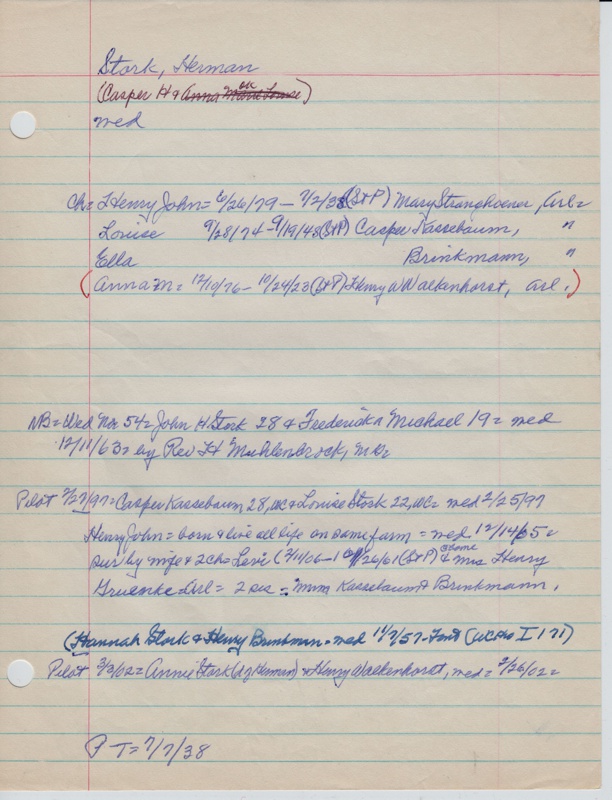 Stork, Herman
(Casper H & Anna Marie Louise) ok
med
Ch= Henry John= 6/26/79 - 7/2/38 (St P) Mary Stranghoener, Arl=
Louise 9/28/74 - 9/19/48 (St P) Casper Kassebaum, "
Ella Brinkmann, "
(Anna M= 12/10/76 - 10/24/23 (St P) Henry W Walkenhorst, Arl.)
NB= Wed No 54= John H Stork 28 & Fredericka Michael 19= med
12/11/63= by Rev H Muhlenbrock, M
Pilot 2/27/97= Casper Kassebaum 28, WC & Louise Stork 22, WC= med 2/25/97
Henry John= born & live all life on same farm= med 12/14/05=
sur by wife & 2 ch= Levi (2/11/06-1 /26/61 (St P) @ home & Mrs Henry
Gruenke= Arl= 2 sis= Mmm Kassebaum & Brinkmann.
(Hannah Stork & Henry Brinkman= med 11/7/57- (WC I 171)
Pilot 3/3/02= Annie Stork (d of Herman) & Henry Walkenhorst, med= 2/26/02=
P T= 7/7/38